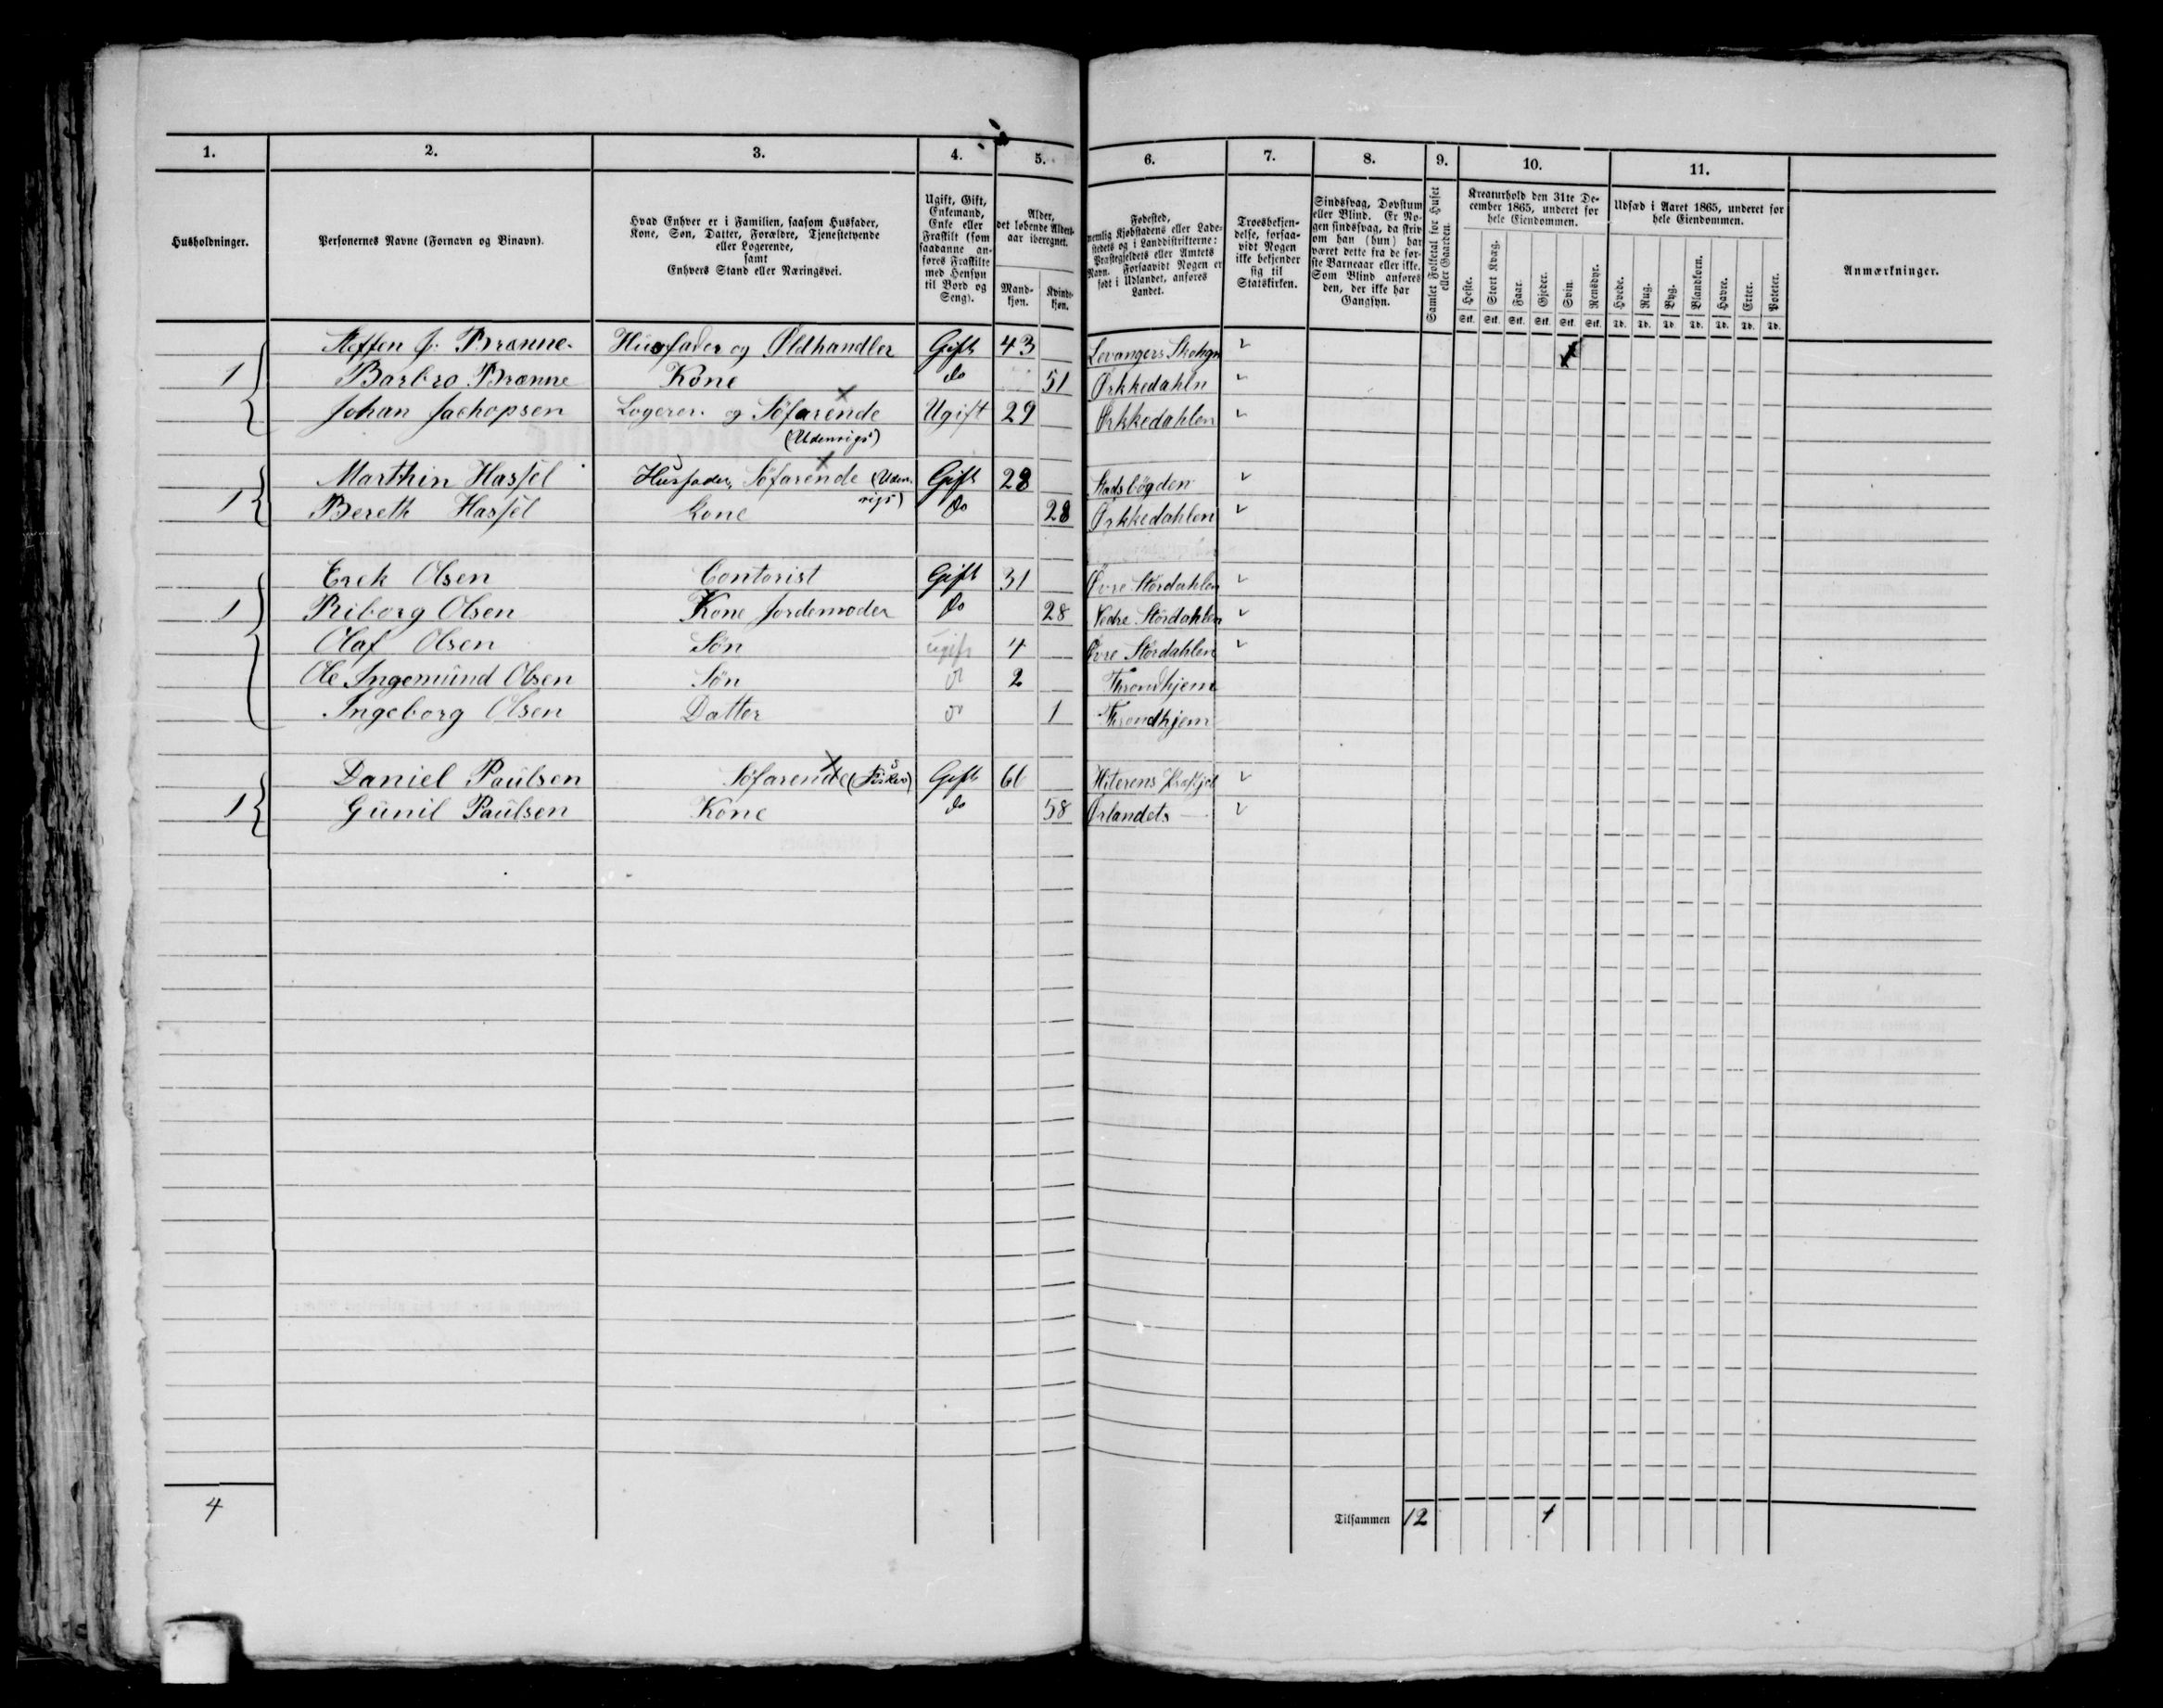 1. 2. 3. 4. 5. 6. 7. 8. 9. 10. 11.
Husholdninger.
Personernes Navne (Fornavn og Binavn).
Hvad Enhver er i Familien, saasom Husfader,
Kone, Søn, Datter, Forældre, Tjenestetyende
eller Logerende,
samt
Enhvers Stand eller Næringsvei.
Ugift, Gift,
Enkemand,
Enke eller
Fraskilt (som
saadanne an-
føres Fraskilte
med Hensyn
til Bord og
Seng).
Alder,
det løbende Alders-
aar iberegnet.
Mand-
kjøn.
Kvinde-
kjøn.
Fødested,
nemlig Kjøbstadens eller Lade-
stedets og i Landdistrikterne:
Præstegjeldets eller Amtets
Navn. Forsaavidt Nogen er
født i Udlandet, anføres
Landet.
Troesbekjen-
delse, forsaa-
vidt Nogen
ikke bekjender
sig til
Statskirken.
Sindssvag, Døvstum
eller Blind. Er No-
gen sindssvag, da skriv
om han (hun) har
været dette fra de før-
ste Barneaar eller ikke.
Som Blind anføres
den, der ikke har
Gangsyn.
Samlet Folketal for Huset
eller Gaarden.
Kreaturhold den 31te De-
cember 1865, underet for
hele Eiendommen.
Heste. Stort Kvæg. Faar. Gjeder. Svin. Rensdyr.
Stk. Stk. Stk. Stk. Stk. Stk.
Udsæd i Aaret 1865, underet for
hele Eiendommen.
Hvede. Rug. Byg. Blandkorn. Havre. Erter. Poteter.
Td. Td. Td. Td. Td. Td. Td.
Anmærkninger.
Steffen J. Brønne Husfader og Ølhandler Gift 43 Levangers Skohgn 1
1 Barbro Brønne Kone do 51 Ørkkedahln
Johan Jachopsen Logerer. og Søfarende Ugift 29 Ørkkedahlen
(Udenrigs)
Marthin Hassel Husfader, Søfarende (Uden- Gift 28 Stadsbøgden
rigs)
1 Bereth Hassel Kone do 28 Ørkkedahlen
Erek Olsen Contorist Gift 31 Øvre Størdahlen
1 Riborg Olsen Kone Jordemoder do 28 Nedre Størdahlen
Olaf Olsen Søn ugift 4 Øvre Størdahlen
Ole Ingemund Olsen Søn do 2 Throndhjem
Ingeborg Olsen Datter do 1 Throndhjem
Daniel Paulsen Søfarende (Fisker) Gift 66 Hiterens Præstgjel
1 Gunil Paulsen Kone do 58 Ørlandets —
4 Tilsammen 12 1